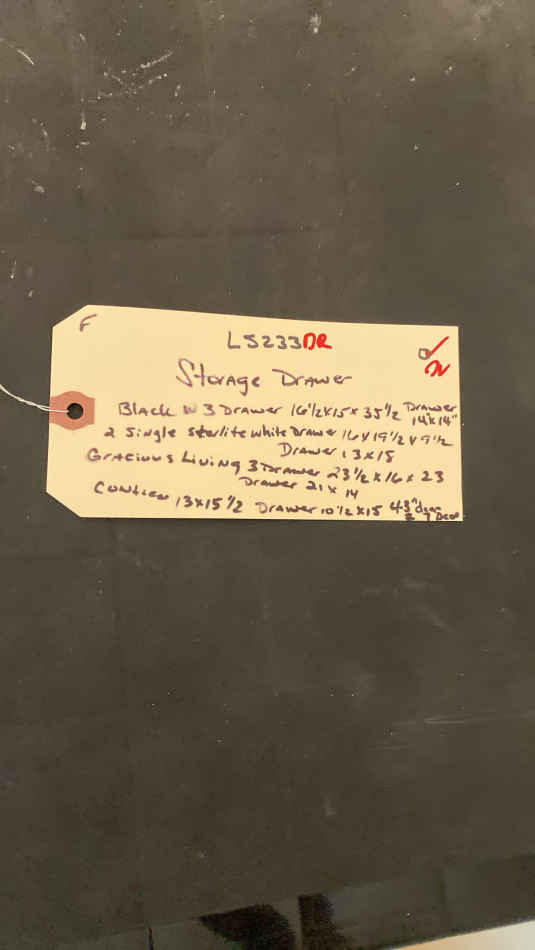 F
LS233DR
Storage Drawer
Black W 3 Drawer 16 1/2 x 15 x 35 1/2 Drawer 14 x 14"
2 Single sterlite white Drawer 16 x 19 1/2 x 9 1/2
Drawer 13 x 15
Gracious Living 3 Drawer 23 1/2 x 16 x 23
Drawer 21 x 14
13 x 15 1/2 Drawer 10 1/2 x 15